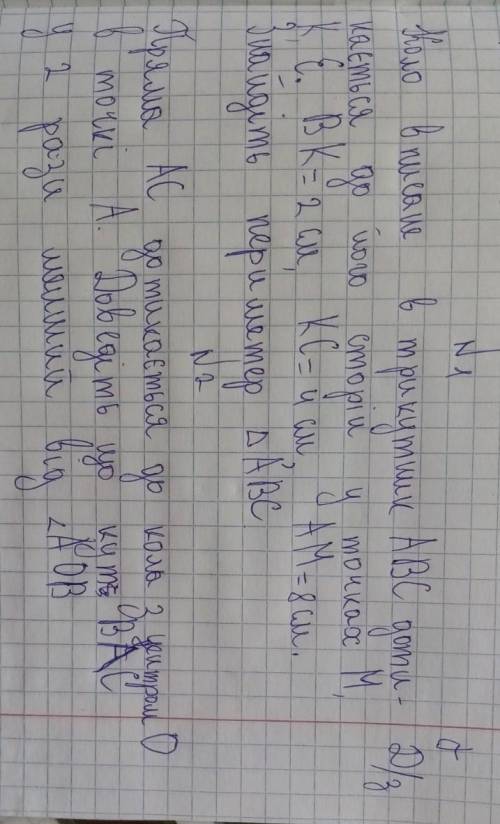 Д/з
N1
Коло вписане в трикутник ABC доти-
кається до його сторін у точках M,
K, E. BK = 2 см, KC = 4 см, AM = 8 см.
Знайдіть периметр △ABC.
N2
Пряма AC дотикається до кола з центром O
в точці A. Доведіть що кут BAC
у 2 рази менший від ∠AOB